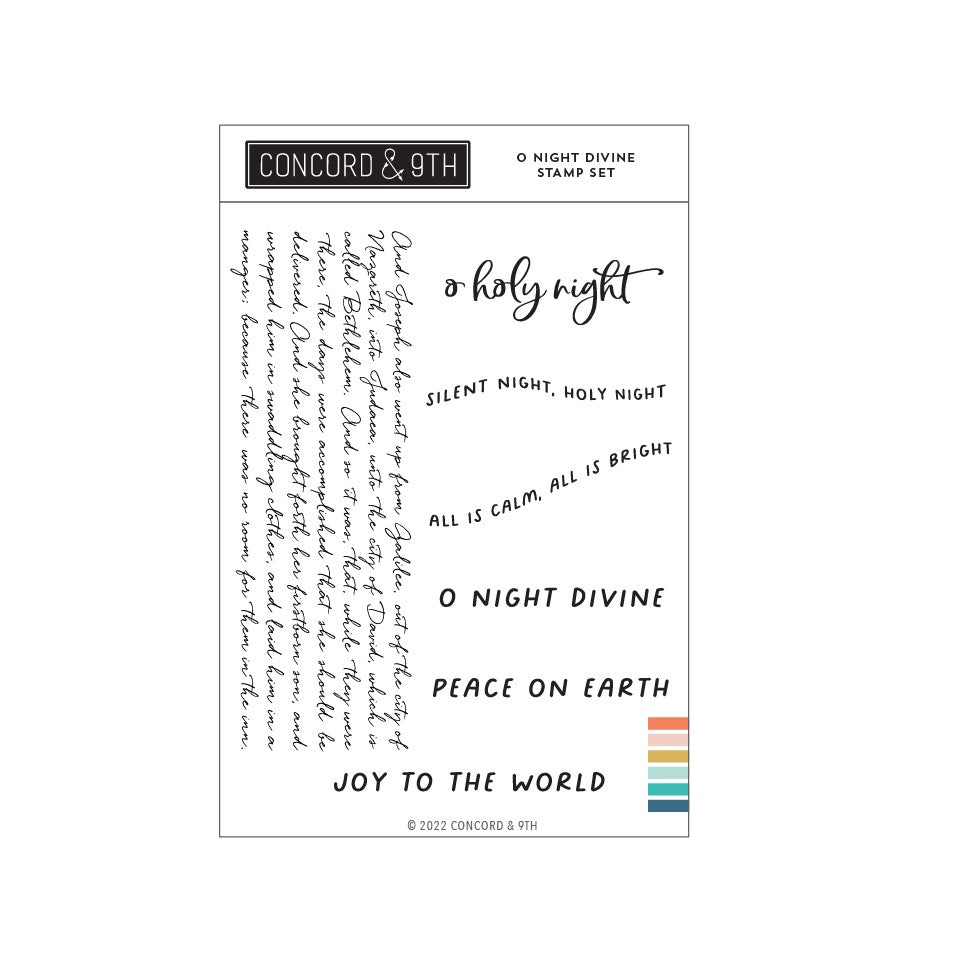 CONCORD & 9TH
O NIGHT DIVINE
STAMP SET
And Joseph also went up from Galilee, out of the city of
Nazareth, into Judaea, unto the city of David, which is
called Bethlehem. And so it was, that, while they were
there, the days were accomplished that she should be
delivered. And she brought forth her firstborn son, and
wrapped him in swaddling clothes, and laid him in a
manger; because there was no room for them in the inn.
o holy night
SILENT NIGHT, HOLY NIGHT
ALL IS CALM, ALL IS BRIGHT
O NIGHT DIVINE
PEACE ON EARTH
JOY TO THE WORLD
© 2022 CONCORD & 9TH